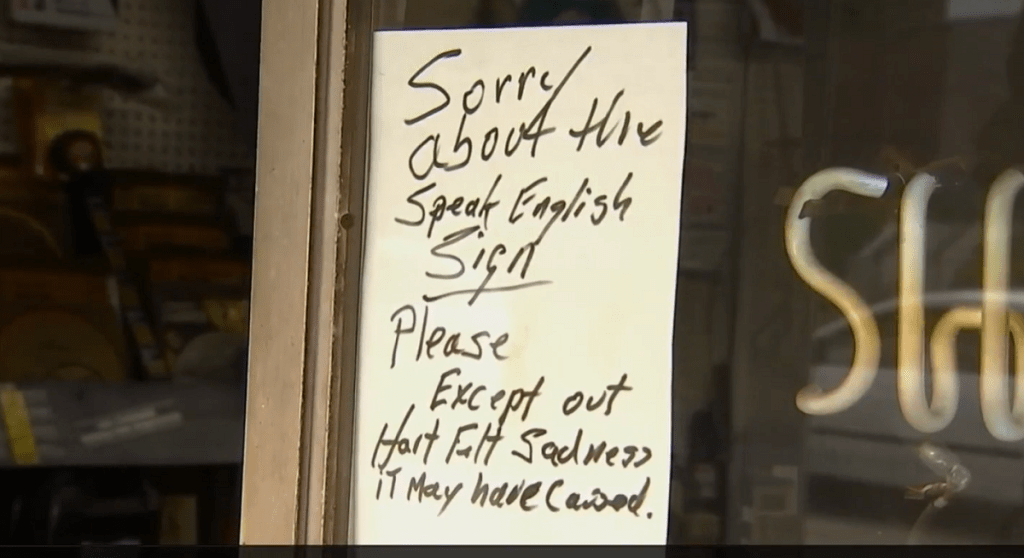 Sorry
about the
Speak English
Sign
Please
Except out
Hart Felt Sadness
it May have Caused.